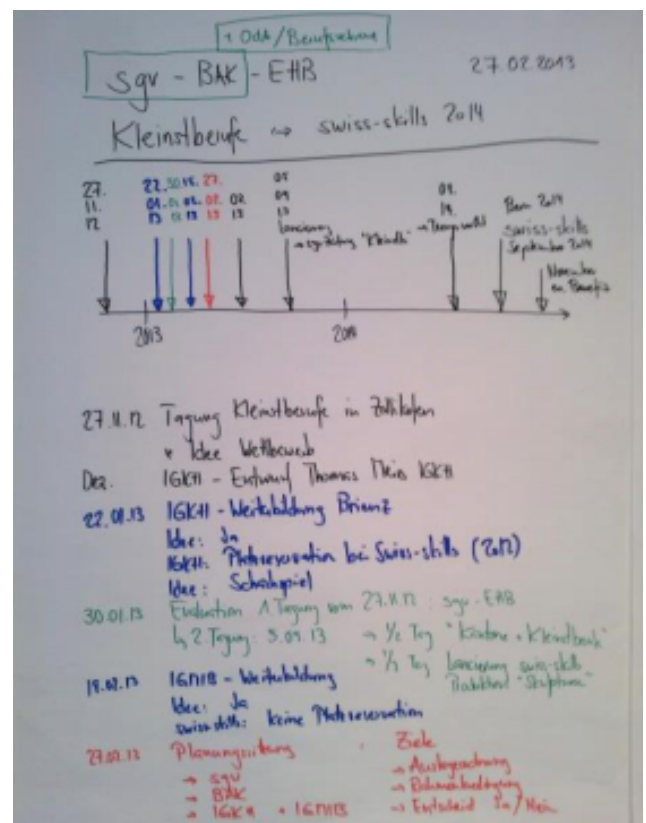 + OdA/Berufsverbände
sgv - BAK - EHB 27.02.2013
Kleinstberufe → swiss-skills 2014
27. 22. 30. 18. 27. 09.
11. 01. 01. 02. 02. 02. 09 09.
12 13 13 13 13 13 13 14. Bern 2014
Lancierung swiss-skills
→ sgv Zeitung → September 2014
November
2013 2014
27.11.12 Tagung Kleinstberufe in Zollikofen
Idee Wettbewerb
Dez. IGKH - Entwurf Thomas IGKH
22.01.13 IGKH - Weiterbildung Brienz
Idee: Ja
IGKH: Platzreservation bei Swiss-skills (2012)
Idee: Schachspiel
30.01.13 Evaluation 1. Tagung vom 27.11.12: sgv-EHB
↳ 2. Tagung: 5.09.13 → 1/2 Tag "Kantone + Kleinstberufe"
→ 1/2 Tag Lancierung swiss-skills
18.02.13 IGMIB - Weiterbildung
Idee: Ja
swiss-skills: keine Platzreservation
27.02.13 Planungssitzung Ziele
→ sgv → Auslegeordnung
→ BAK → Rahmenbedingung
→ IGKH + IGMIB → Entscheid Ja/Nein